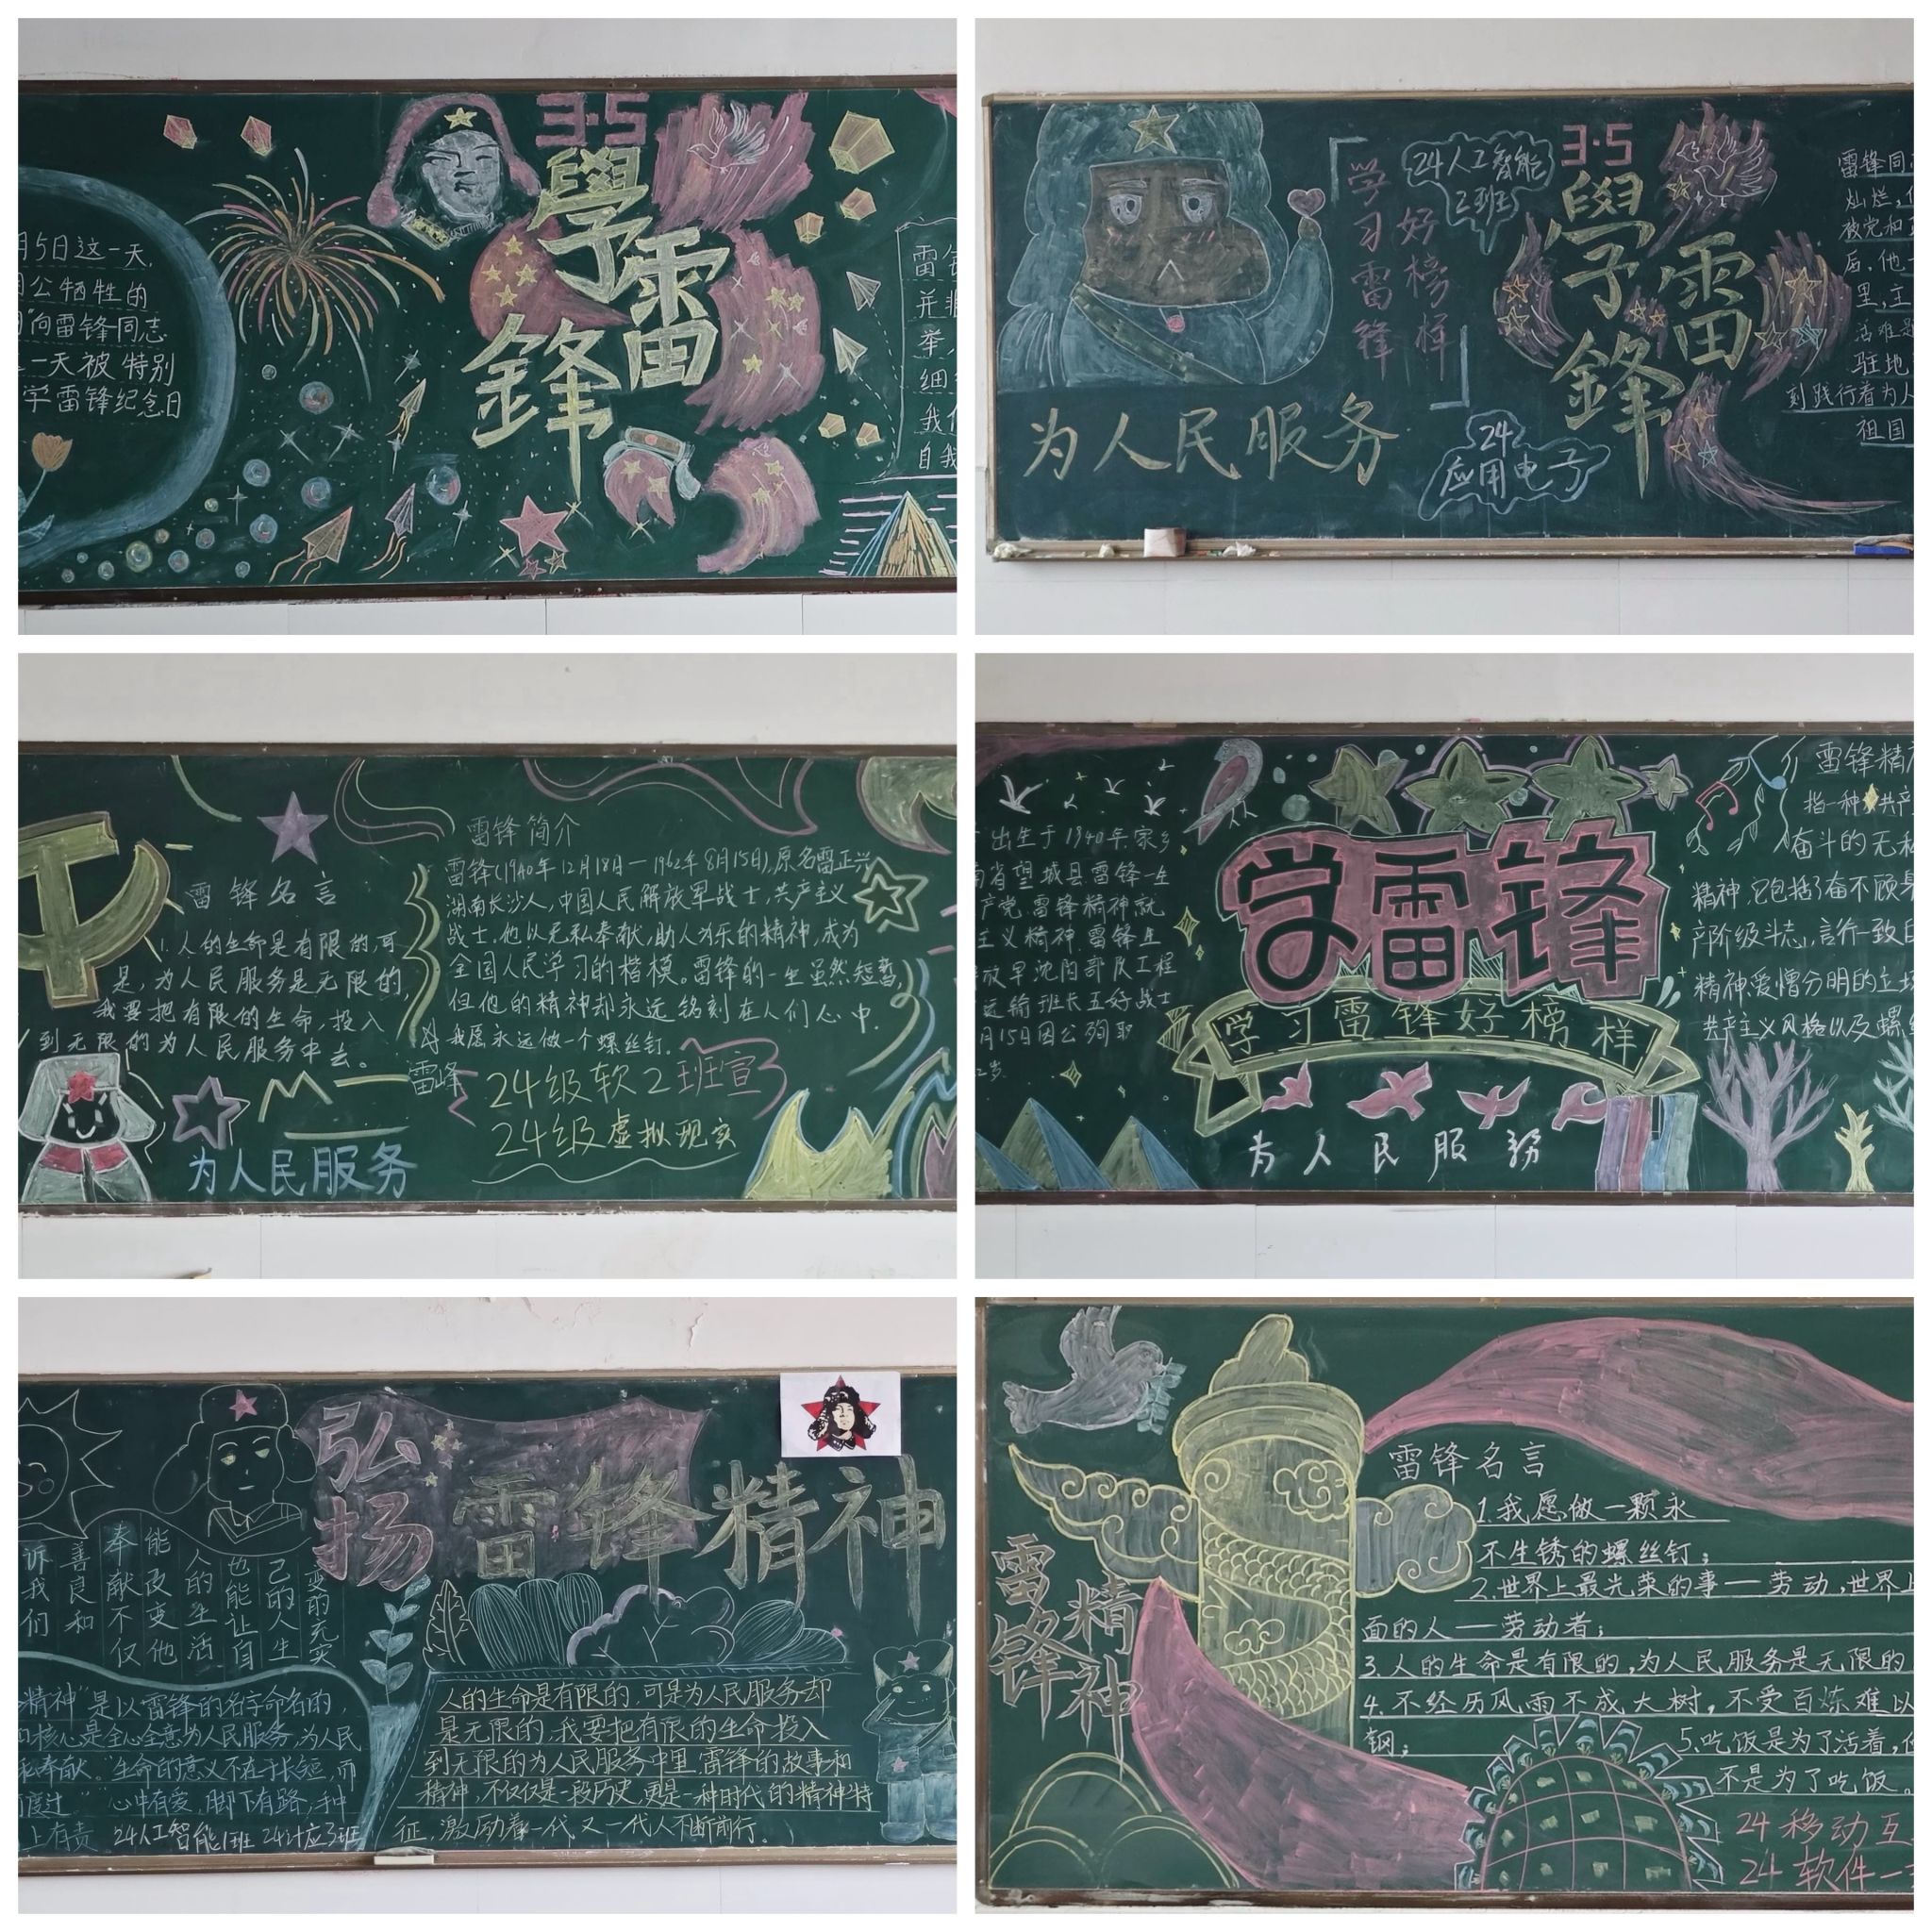 3·5
學
雷
鋒
月5日这一天,
公牺牲的
向雷锋同志
一天被特别
学雷锋纪念日
雷锋
并非
举,
细
我们
自我
学习雷锋
好榜样
24人工智能
2班
3·5
學
雷
鋒
为人民服务
24
应用电子
雷锋同
灿烂,
被党和
后,他
里,主
活难
驻地
刻践行着为人
祖国
雷锋名言
1.人的生命是有限的,可
是,为人民服务是无限的,
我要把有限的生命,投入
到无限的为人民服务中去。
雷峰
为人民服务
雷锋简介
雷锋(1940年12月18日—1962年8月15日),原名雷正兴
湖南长沙人,中国人民解放军战士,共产主义
战士,他以无私奉献,助人为乐的精神,成为
全国人民学习的楷模。雷锋的一生虽然短暂,
但他的精神却永远铭刻在人们心中.
我愿永远做一个螺丝钉.
24级软2班宣
24级虚拟现实
出生于1940年.家乡
省望城县.雷锋一生
产党.雷锋精神就
主义精神.雷锋生
放早沈阳部队工程
运输班长五好战士
月15日因公殉职
2岁.
学雷锋
学习雷锋好榜样
为人民服务
雷锋精神
指一种共产
奋斗的无私
精神,它包括了奋不顾身
产阶级斗志,言行一致的
精神爱憎分明的立场
共产主义风格以及螺丝
弘扬
雷锋精神
诉我们
善良和
奉献不仅
能改变他
人的生活
也能让自
己的人生
变的充实
精神"是以雷锋的名字命名的,
核心是全心全意为人民服务,为人民
私奉献。"生命的意义不在于长短,而
度过。"心中有爱,脚下有路,种
上有责
24人工智能1班 24计应3班
人的生命是有限的,可是为人民服务却
是无限的,我要把有限的生命投入
到无限的为人民服务中里.雷锋的故事和
精神,不仅仅是一段历史,更是一种时代的精神特
征,激励着一代又一代人不断前行。
雷锋
精神
雷锋名言
1.我愿做一颗永
不生锈的螺丝钉;
2.世界上最光荣的事——劳动,世界上
面的人——劳动者;
3.人的生命是有限的,为人民服务是无限的
4.不经历风雨不成大树,不受百炼难以
钢;
5.吃饭是为了活着,但
不是为了吃饭。
24移动互
24软件一